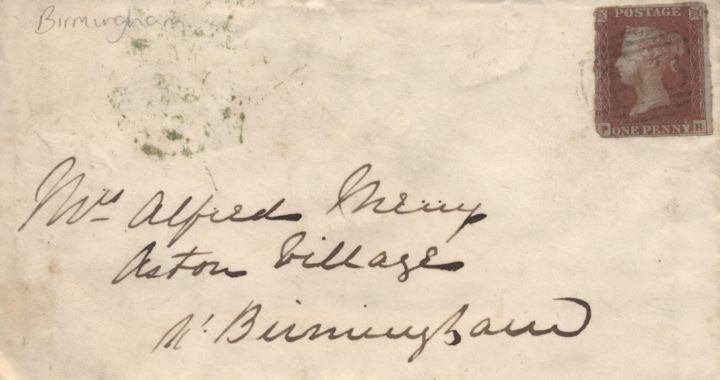 Birmingham
POSTAGE
ONE PENNY
Mrs Alfred Merry
Aston Village
Nr Birmingham